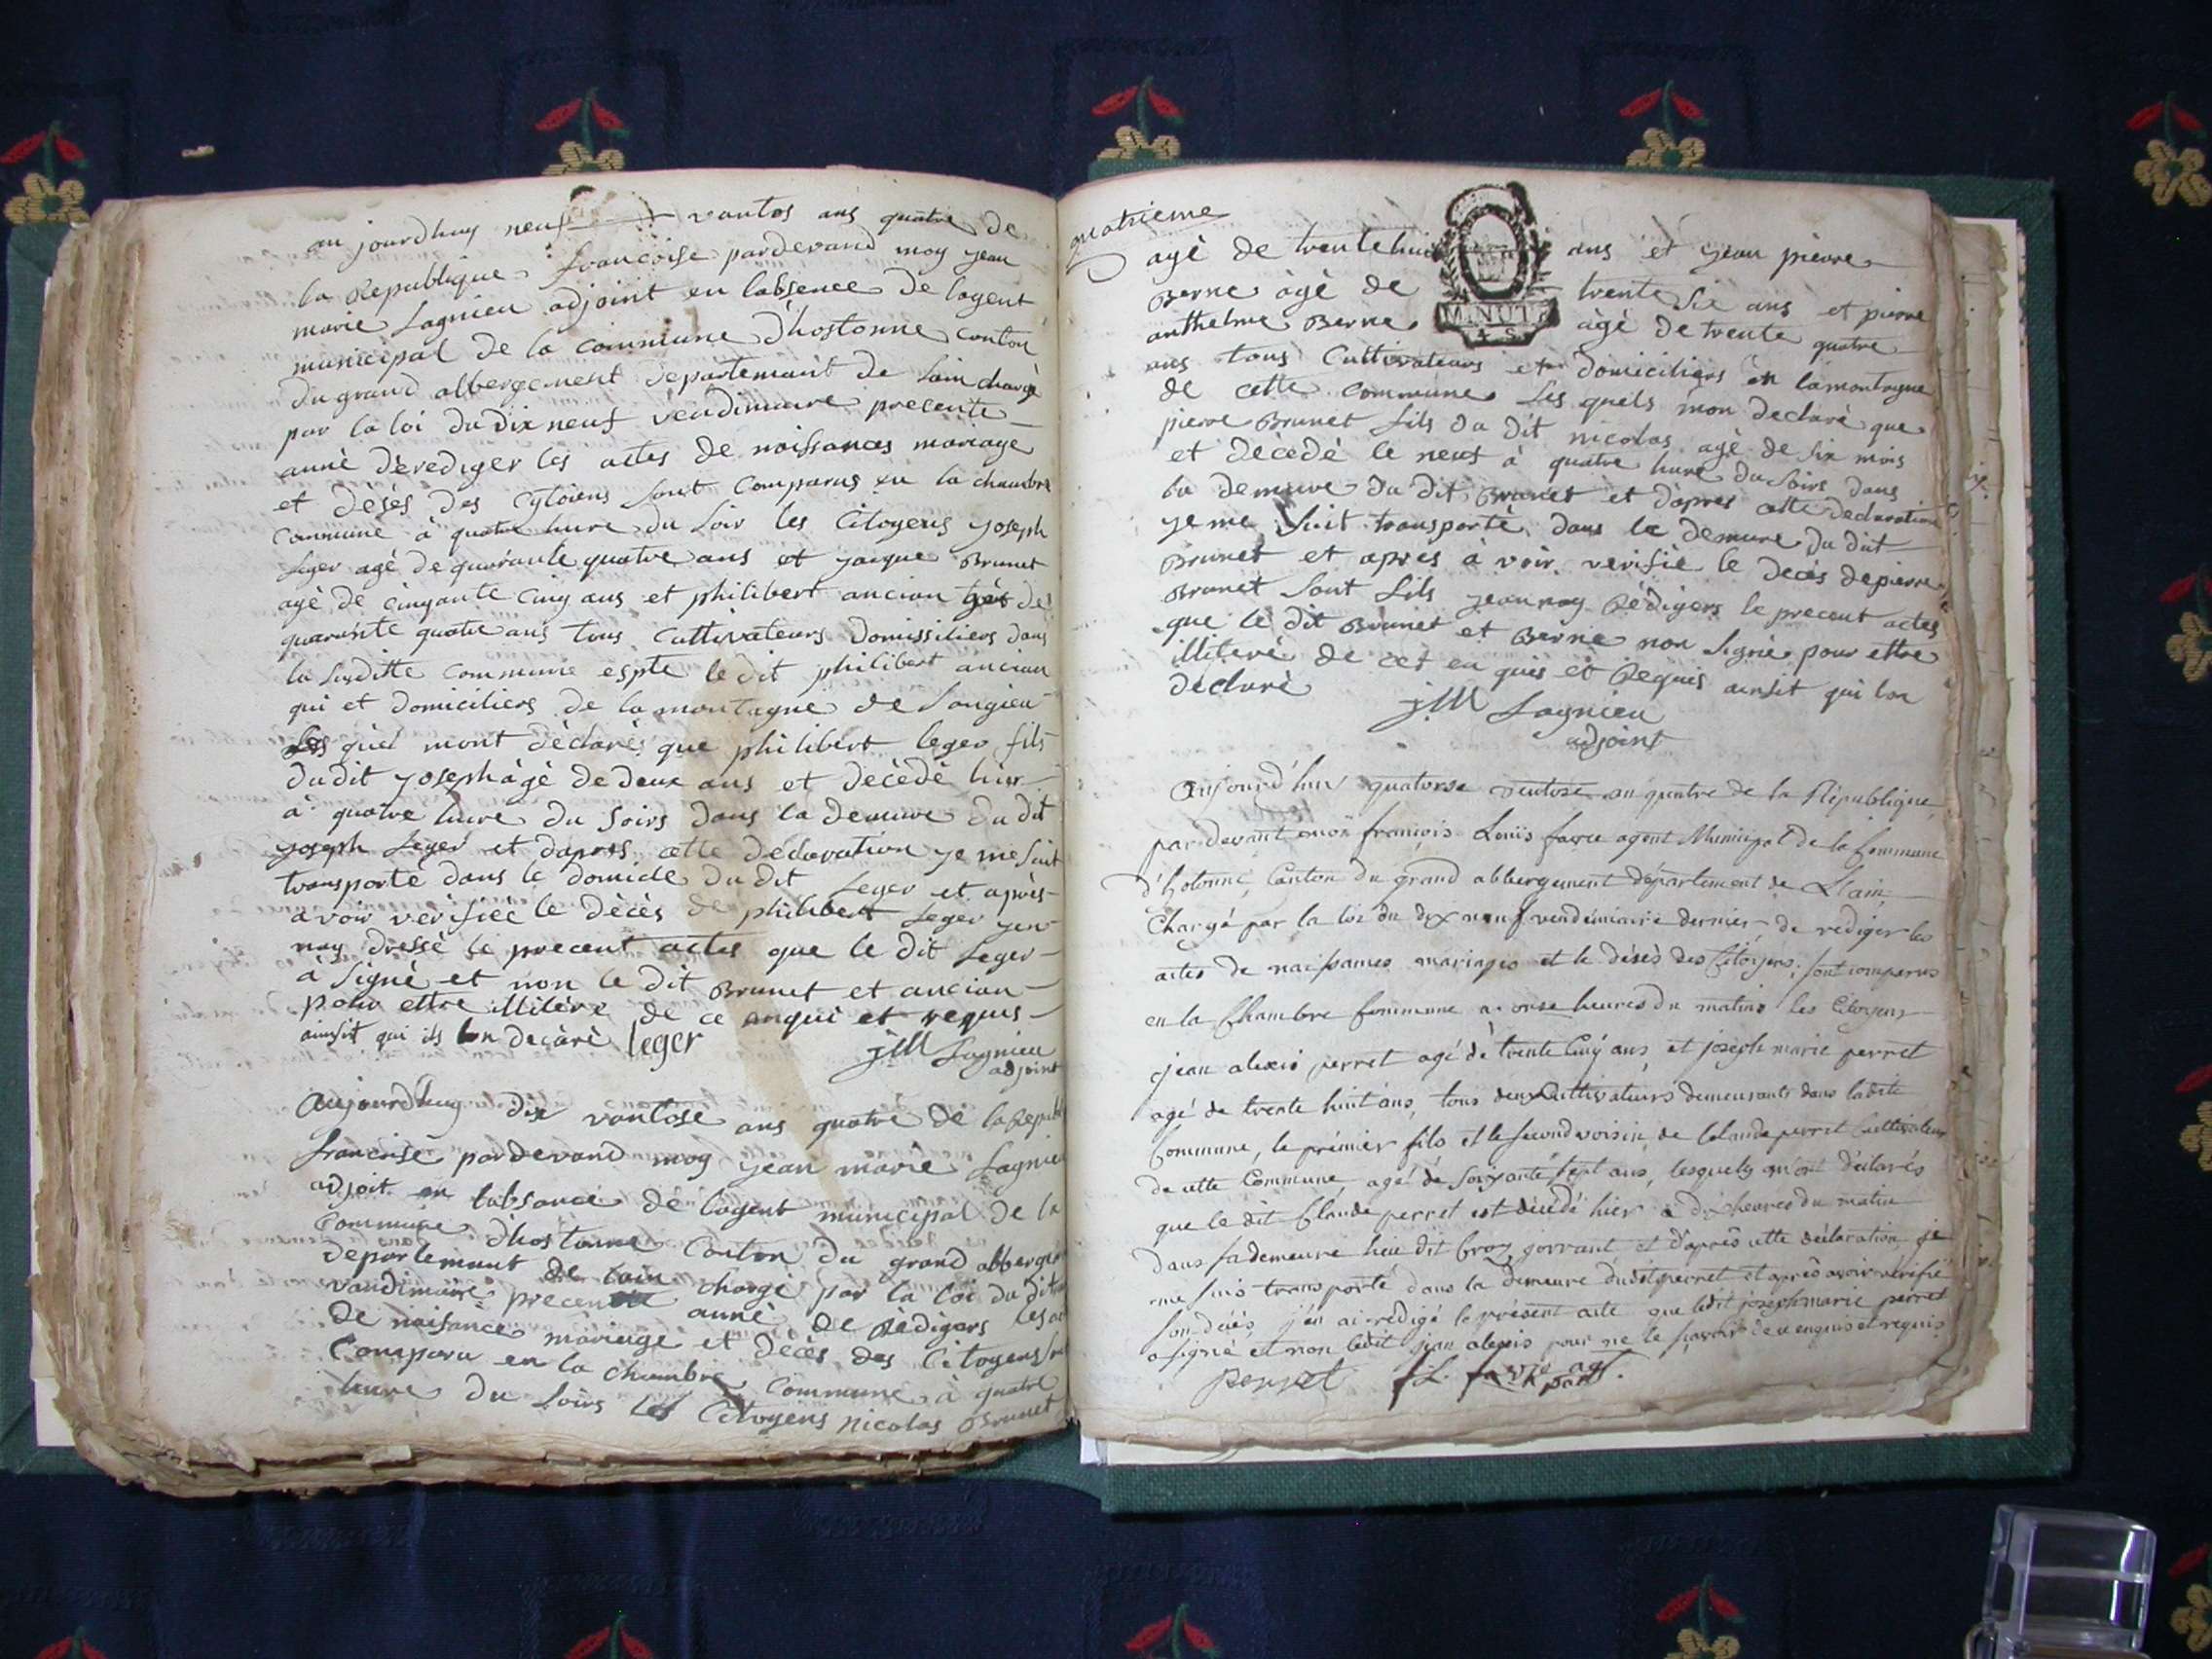 aujourdhuy neuf vantos ans quatre de
la Republique francoise pardevand moy jean
marie Lagnieu adjoint en labsence de lagent
municipal de la commune dhostonne conton
du grand albergement departemant de lain chargé
par la loi du dix neuf vendimaire precente
anné dèrediger les actes de naissances mariage
et désés des cytoiens sont comparus en la chambre
commune à quatre hure du soir les citoyens joseph
leger agé de quarante quatre ans et jacque Brunet
agé de cinquante cinq ans et philibert ancian agé de
quarante quatre ans tous cultivateurs domissiliers dans
la susditte commune espte le dit philibert ancian
qui et domiciliers de la montagne de Songieu
Les quel mont dèclarés que philibert leger fils
du dit joseph àgè de deux ans et decèdé hier
à quatre hure du soirs dans la demure du dit
joseph Leger et dapres cette declaration je me suit
transporté dans le domicile du dit Leger et après
avoir verifiéé le dècès de philibert Leger jen
nay dressé le precent actes que le dit Leger
à Signé et non le dit Brunet et ancian
pour ettre illitèré de ce anqui et requis
ainsit qui ils lon decaré leger
jM Lagnieu
adjoint
Aujourdhuy dix vantose ans quatre de la Repub
francoise pardevand moy jean marie Lagnieu
adjoit en labsance de lagent municipal de la
commune dhostonne Conton du grand alberge
departemant de lain chargé par la loi du dit
vandimaire precente anné de Rèdigers les
de naisance mariage et décés des Citoyens
Comparu en la chambre commune à quatre
hure du soirs les Citoyens nicolas Brunet
quatrieme
agè de trentehuit ans et jean pierre
Berne àgè de trente six ans et pierre
anthelme Berne àgè de trente quatre
MINUTE
4 S.
ans tous Cultivateurs et domiciliers en la montagne
de cette commune Les quels mon declaré que
pierre Brunet fils du dit nicolas agè de six mois
et dècèdé le neuf à quatre hure du soirs dans
la demeure du dit Brunet et dapres cette declaration
je me suit transporté dans la demure du dit
Brunet et apres à voir verifié le decès de pierre
Brunet sont fils jean nay Rédigers le precent actes
que le dit Brunet et Berne non signé pour ettre
illiteré de cet en quis et Requis ainsit qui lon
déclaré
jM Lagnieu
adjoint
Aujourd'hui quatorse ventose an quatre de la République
pardevant moi françois Louis favre agent Municipal de la Commune
d'hotonne, Canton du grand abbergement département de L'ain,
Chargé par la loi du dix neuf vendémiaire dernier de rediger les
actes de naissances mariages et le décès des Citoyens, sont comparus
en la Chambre Commune a onse heures du matins les Citoyens
jean alexis perret agé de trente Cinq ans et joseph marie perret
agé de trente huit ans, tous deux Cultivateurs demeurants dans ladite
Commune, le prémier fils et le second voisin de Claude perret Cultivateur
de cette Commune agé de soixante sept ans, lesquels m'ont déclarés
que le dit Claude perret est décédé hier à dix heures du matin
dans sa demeure lieu dit et d'après cette déclaration je
me suis transporté dans la demeure dudit perret et après avoir verifié
son décés, j'en ai redigé le présent acte que ledit joseph marie perret
a signé et non ledit jean alexis pour ne le sçavoir de ce enquis et requis
Perret f L. favre agt